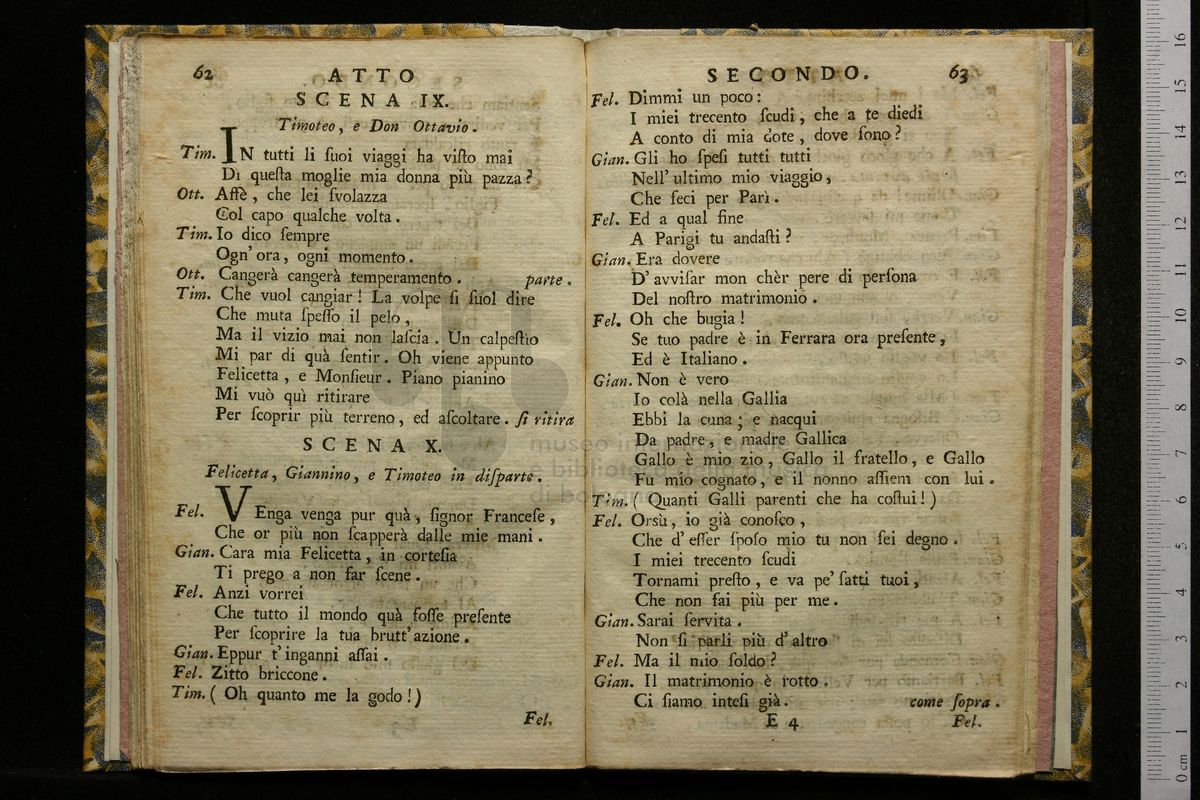 62 ATTO
SCENA IX.
Timoteo, e Don Ottavio.
Tim. IN tutti li ſuoi viaggi ha viſto mai
Di queſta moglie mia donna più pazza?
Ott. Affè, che lei ſvolazza
Col capo qualche volta.
Tim. Io dico ſempre
Ogn' ora, ogni momento.
Ott. Cangerà cangerà temperamento. parte.
Tim. Che vuol cangiar! La volpe ſi ſuol dire
Che muta ſpeſſo il pelo,
Ma il vizio mai non laſcia. Un calpeſtio
Mi par di quà ſentir. Oh viene appunto
Felicetta, e Monſieur. Piano pianino
Mi vuò quì ritirare
Per ſcoprir più terreno, ed aſcoltare. ſi ritira
SCENA X.
Felicetta, Giannino, e Timoteo in diſparte.
Fel. VEnga venga pur quà, ſignor Franceſe,
Che or più non ſcapperà dalle mie mani.
Gian. Cara mia Felicetta, in corteſia
Ti prego a non far ſcene.
Fel. Anzi vorrei
Che tutto il mondo quà foſſe preſente
Per ſcoprire la tua brutt' azione.
Gian. Eppur t' inganni aſſai.
Fel. Zitto briccone.
Tim. ( Oh quanto me la godo! )
Fel.
SECONDO. 63
Fel. Dimmi un poco:
I miei trecento ſcudi, che a te diedi
A conto di mia dote, dove ſono?
Gian. Gli ho ſpeſi tutti tutti
Nell' ultimo mio viaggio,
Che feci per Parì.
Fel. Ed a qual fine
A Parigi tu andaſti?
Gian. Era dovere
D' avviſar mon chèr pere di perſona
Del noſtro matrimonio.
Fel. Oh che bugia!
Se tuo padre è in Ferrara ora preſente,
Ed è Italiano.
Gian. Non è vero
Io colà nella Gallia
Ebbi la cuna; e nacqui
Da padre, e madre Gallica
Gallo è mio zio, Gallo il fratello, e Gallo
Fu mio cognato, e il nonno aſſiem con lui.
Tim. ( Quanti Galli parenti che ha coſtui! )
Fel. Orsù, io già conoſco,
Che d' eſſer ſpoſo mio tu non ſei degno.
I miei trecento ſcudi
Tornami preſto, e va pe' fatti tuoi,
Che non fai più per me.
Gian. Sarai ſervita.
Non ſi parli più d' altro
Fel. Ma il mio ſoldo?
Gian. Il matrimonio è rotto.
Ci ſiamo inteſi già. come ſopra.
E 4 Fel.